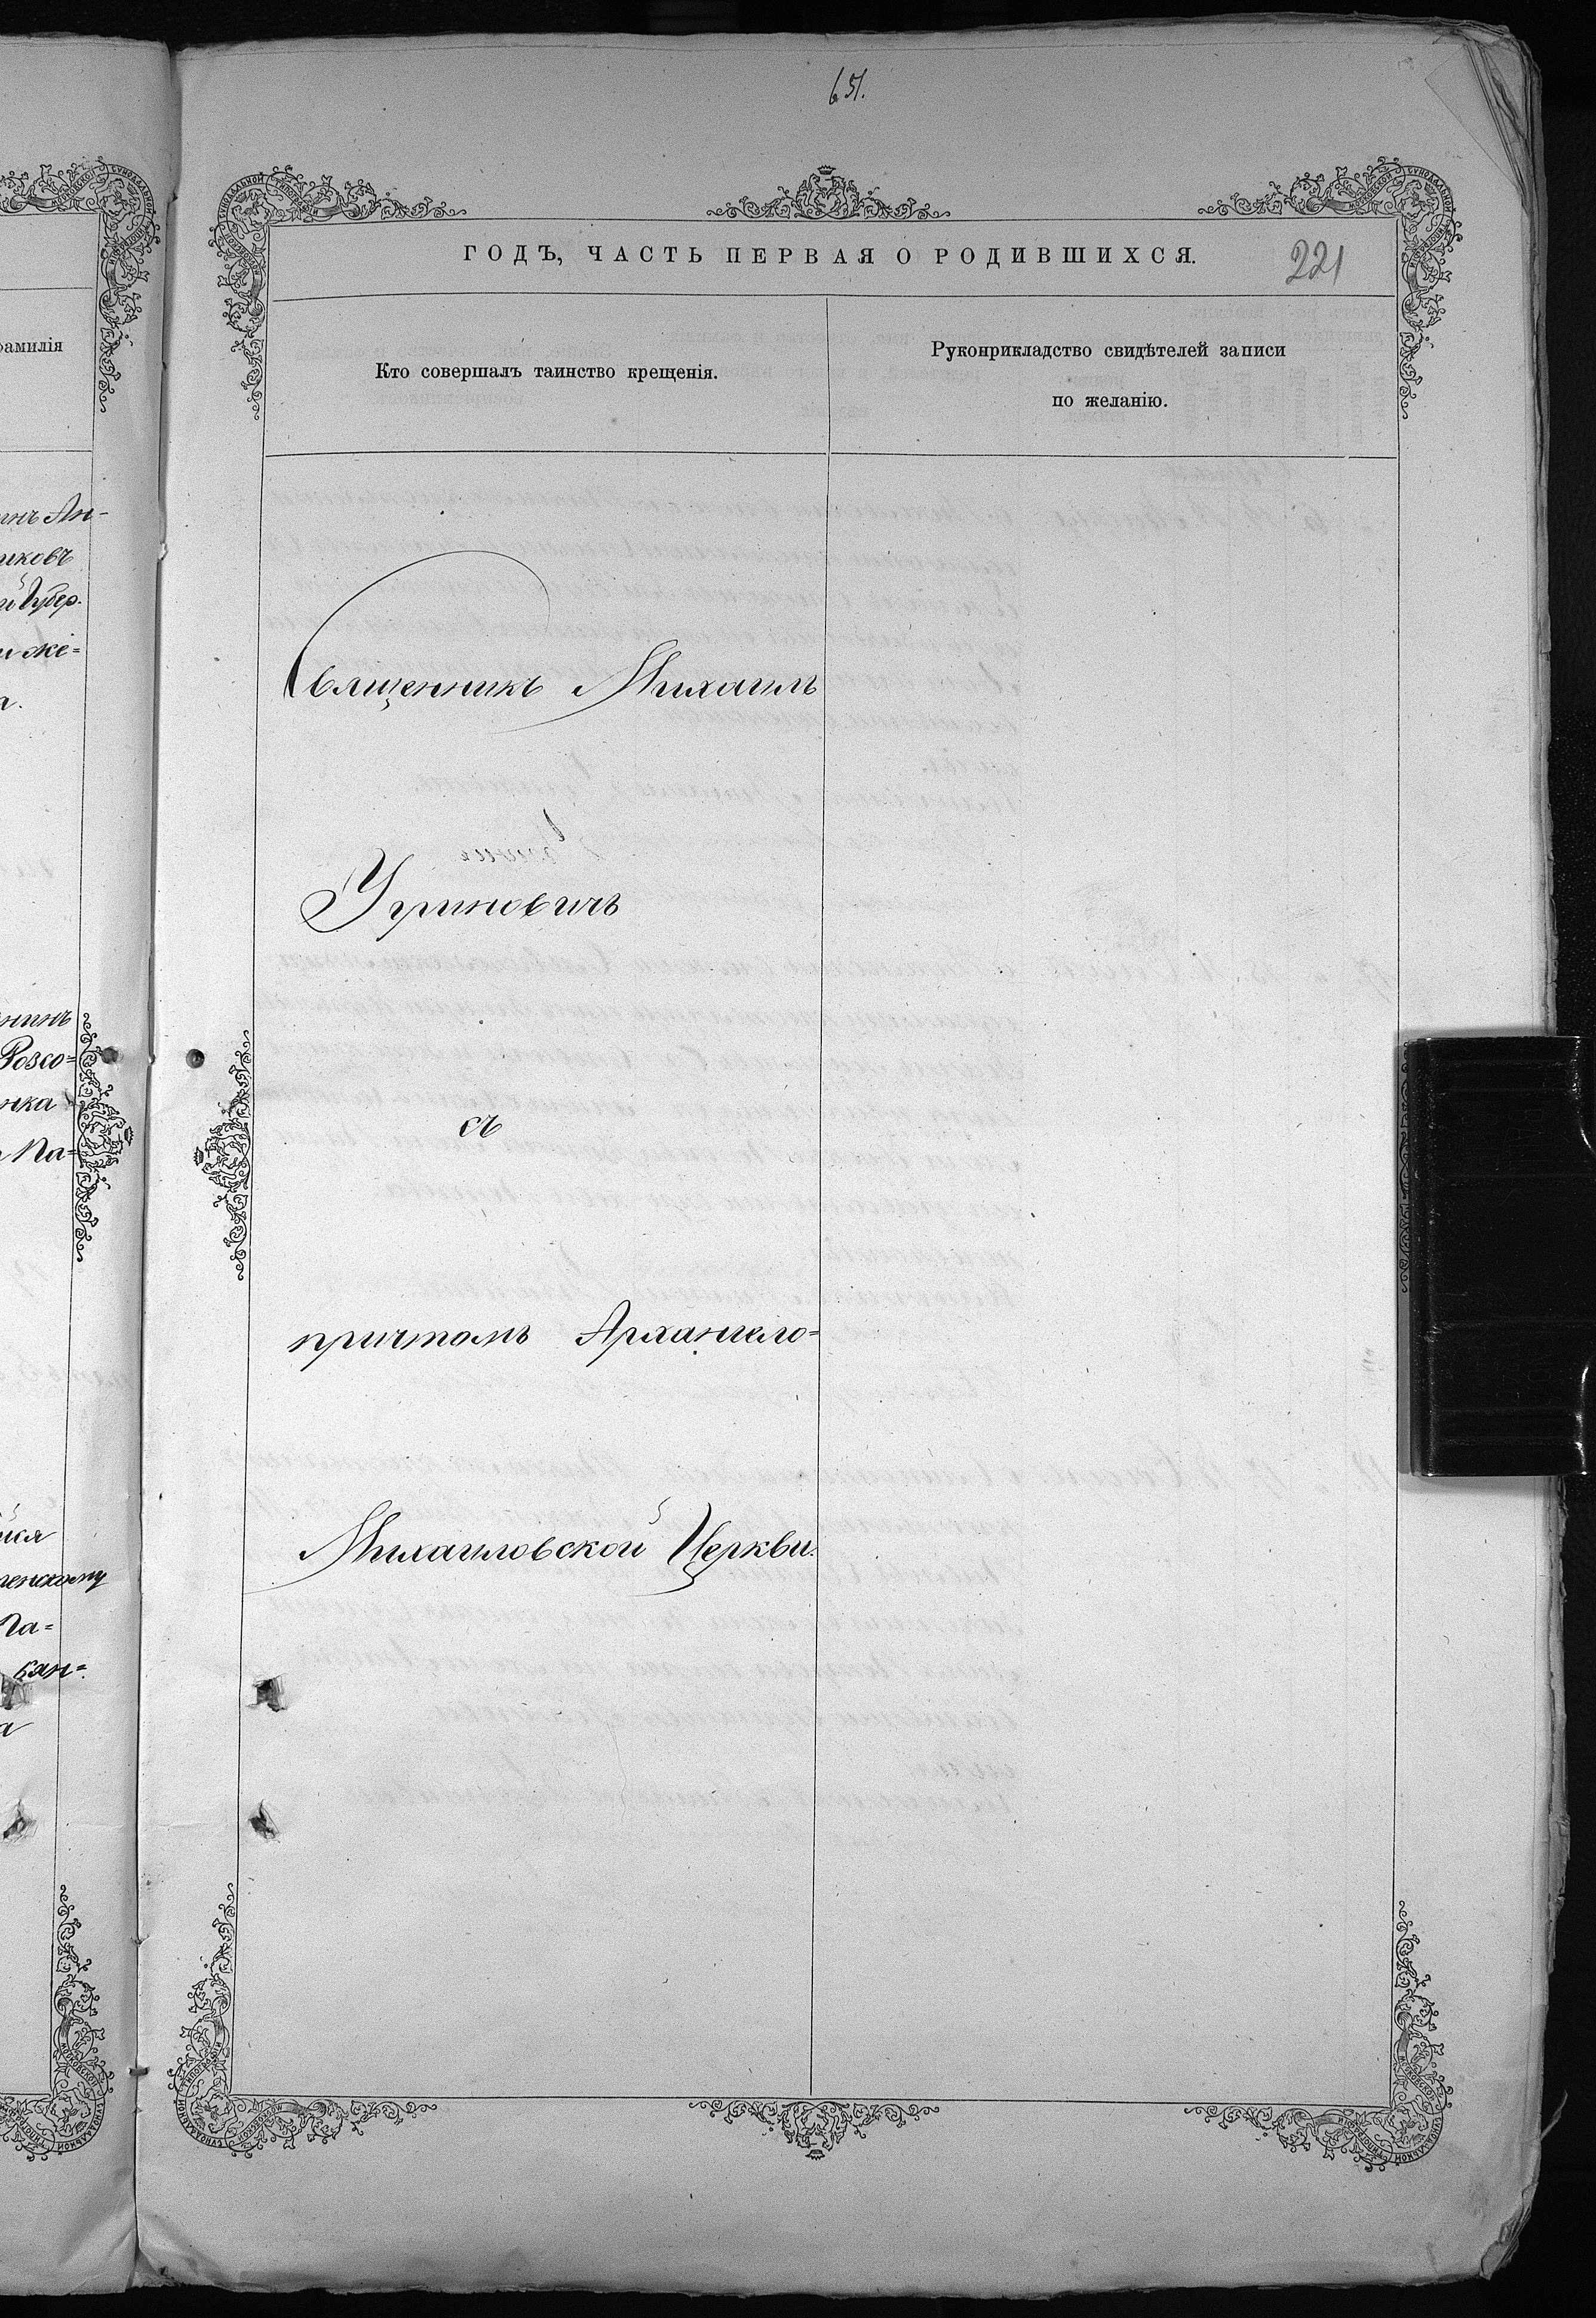 651.
ГОДЪ, ЧАСТЬ ПЕРВАЯ О РОДИВШИХСЯ.
221
Кто совершалъ таинство крещенія.
Рукоприкладство свидѣтелей записи
по желанію.
Священникъ Михаилъ
Угриновичъ
съ
причтомъ Архангело=
Михаиловской Церкви.
фамилія
Ан-
иковъ
й Губер.
и же=
нинъ
Розсо=
нка
Па=
енскому
Га=